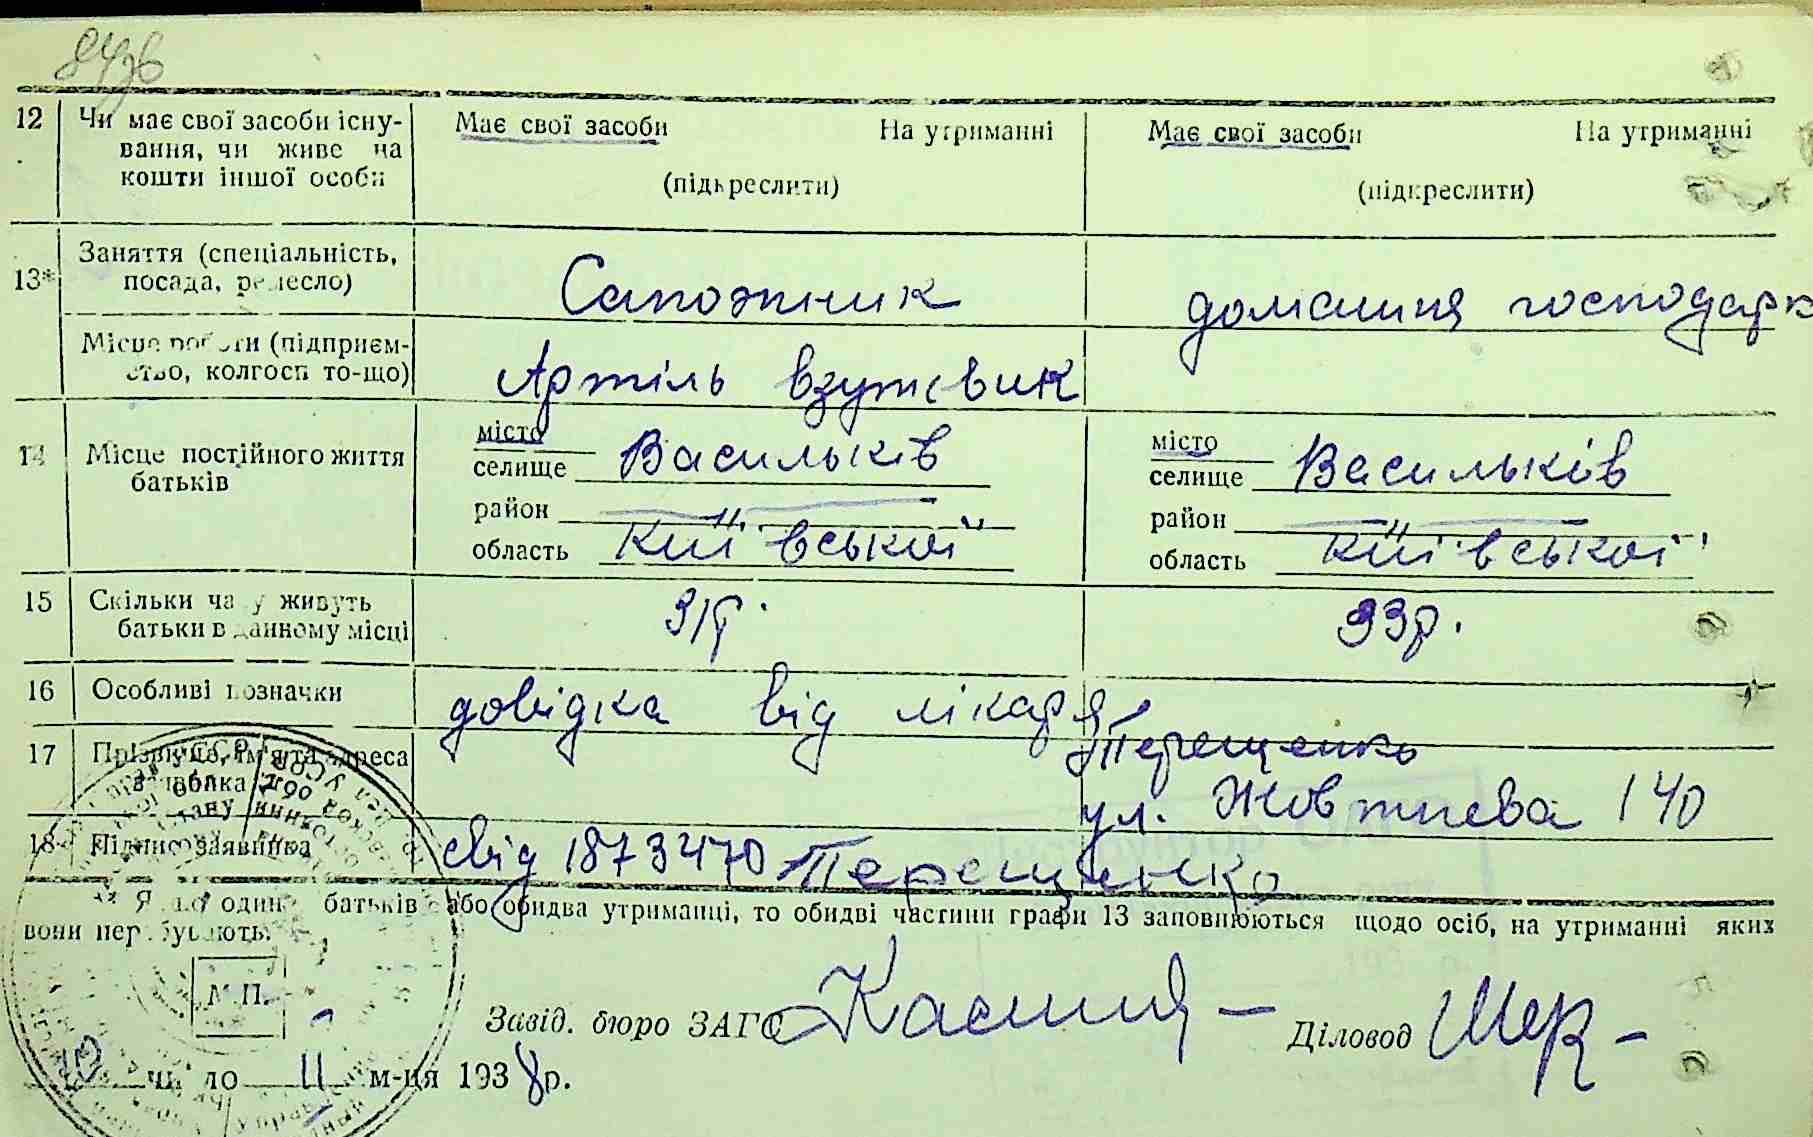 12 Чи має свої засоби існу- Має свої засоби На утриманні Має свої засоби На утриманні
вання, чи живе на
кошти іншої особи (підкреслити) (підкреслити)
13* Заняття (спеціальність, Сапожник домашня господарк
посада, ремесло)
Місце роботи (підприєм- Артіль взутєвик
ство, колгосп то-що)
14 Місце постійного життя місто Васильків місто Васильків
батьків селище селище
район район
область Київської область Київської
15 Скільки часу живуть 31р. 33р.
батьки в данному місці
16 Особливі позначки довідка від лікаря
17 Прізвище, ім'я та адреса Терещенко
заявника ул. Жовтнева 140
18 Підпис заявника свід 1873470 Терещенко
* Якщо один з батьків або обидва утриманці, то обидві частини графи 13 заповнюються щодо осіб, на утриманні яких
вони перебувають.
М.П.
Завід. бюро ЗАГС Діловод
число 11 м-ця 1938р.